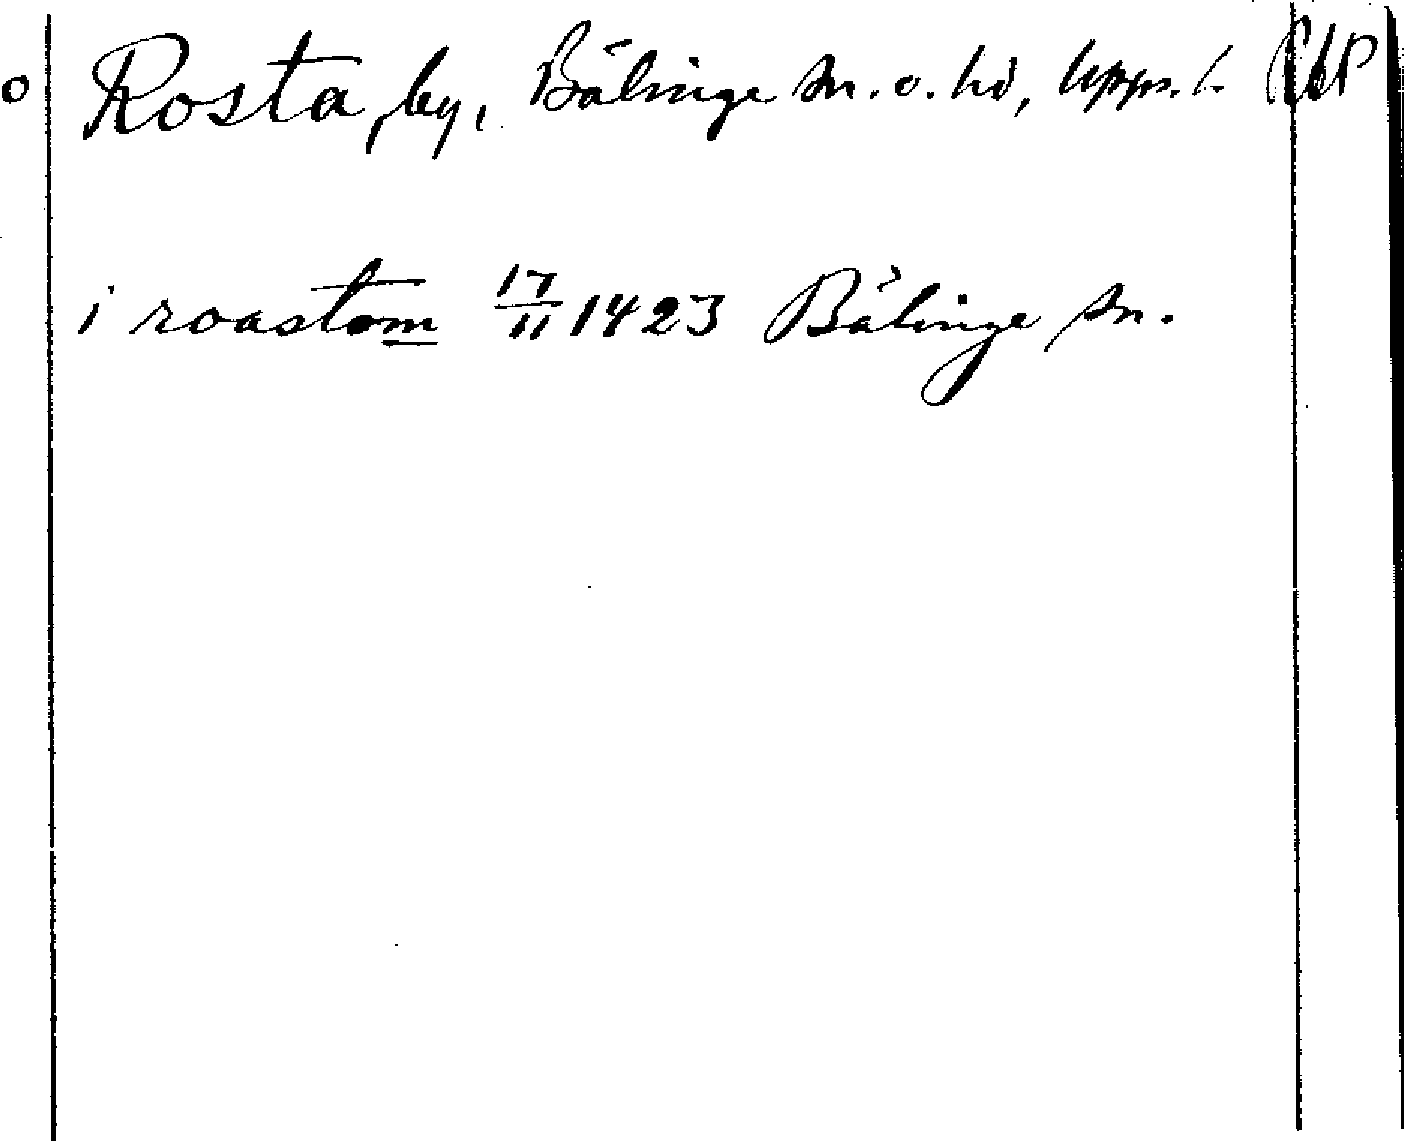 Rosta, by, Bälinge sn. o. hd, Upps. l.
i roastom 17/11 1423 Bälinge sn.